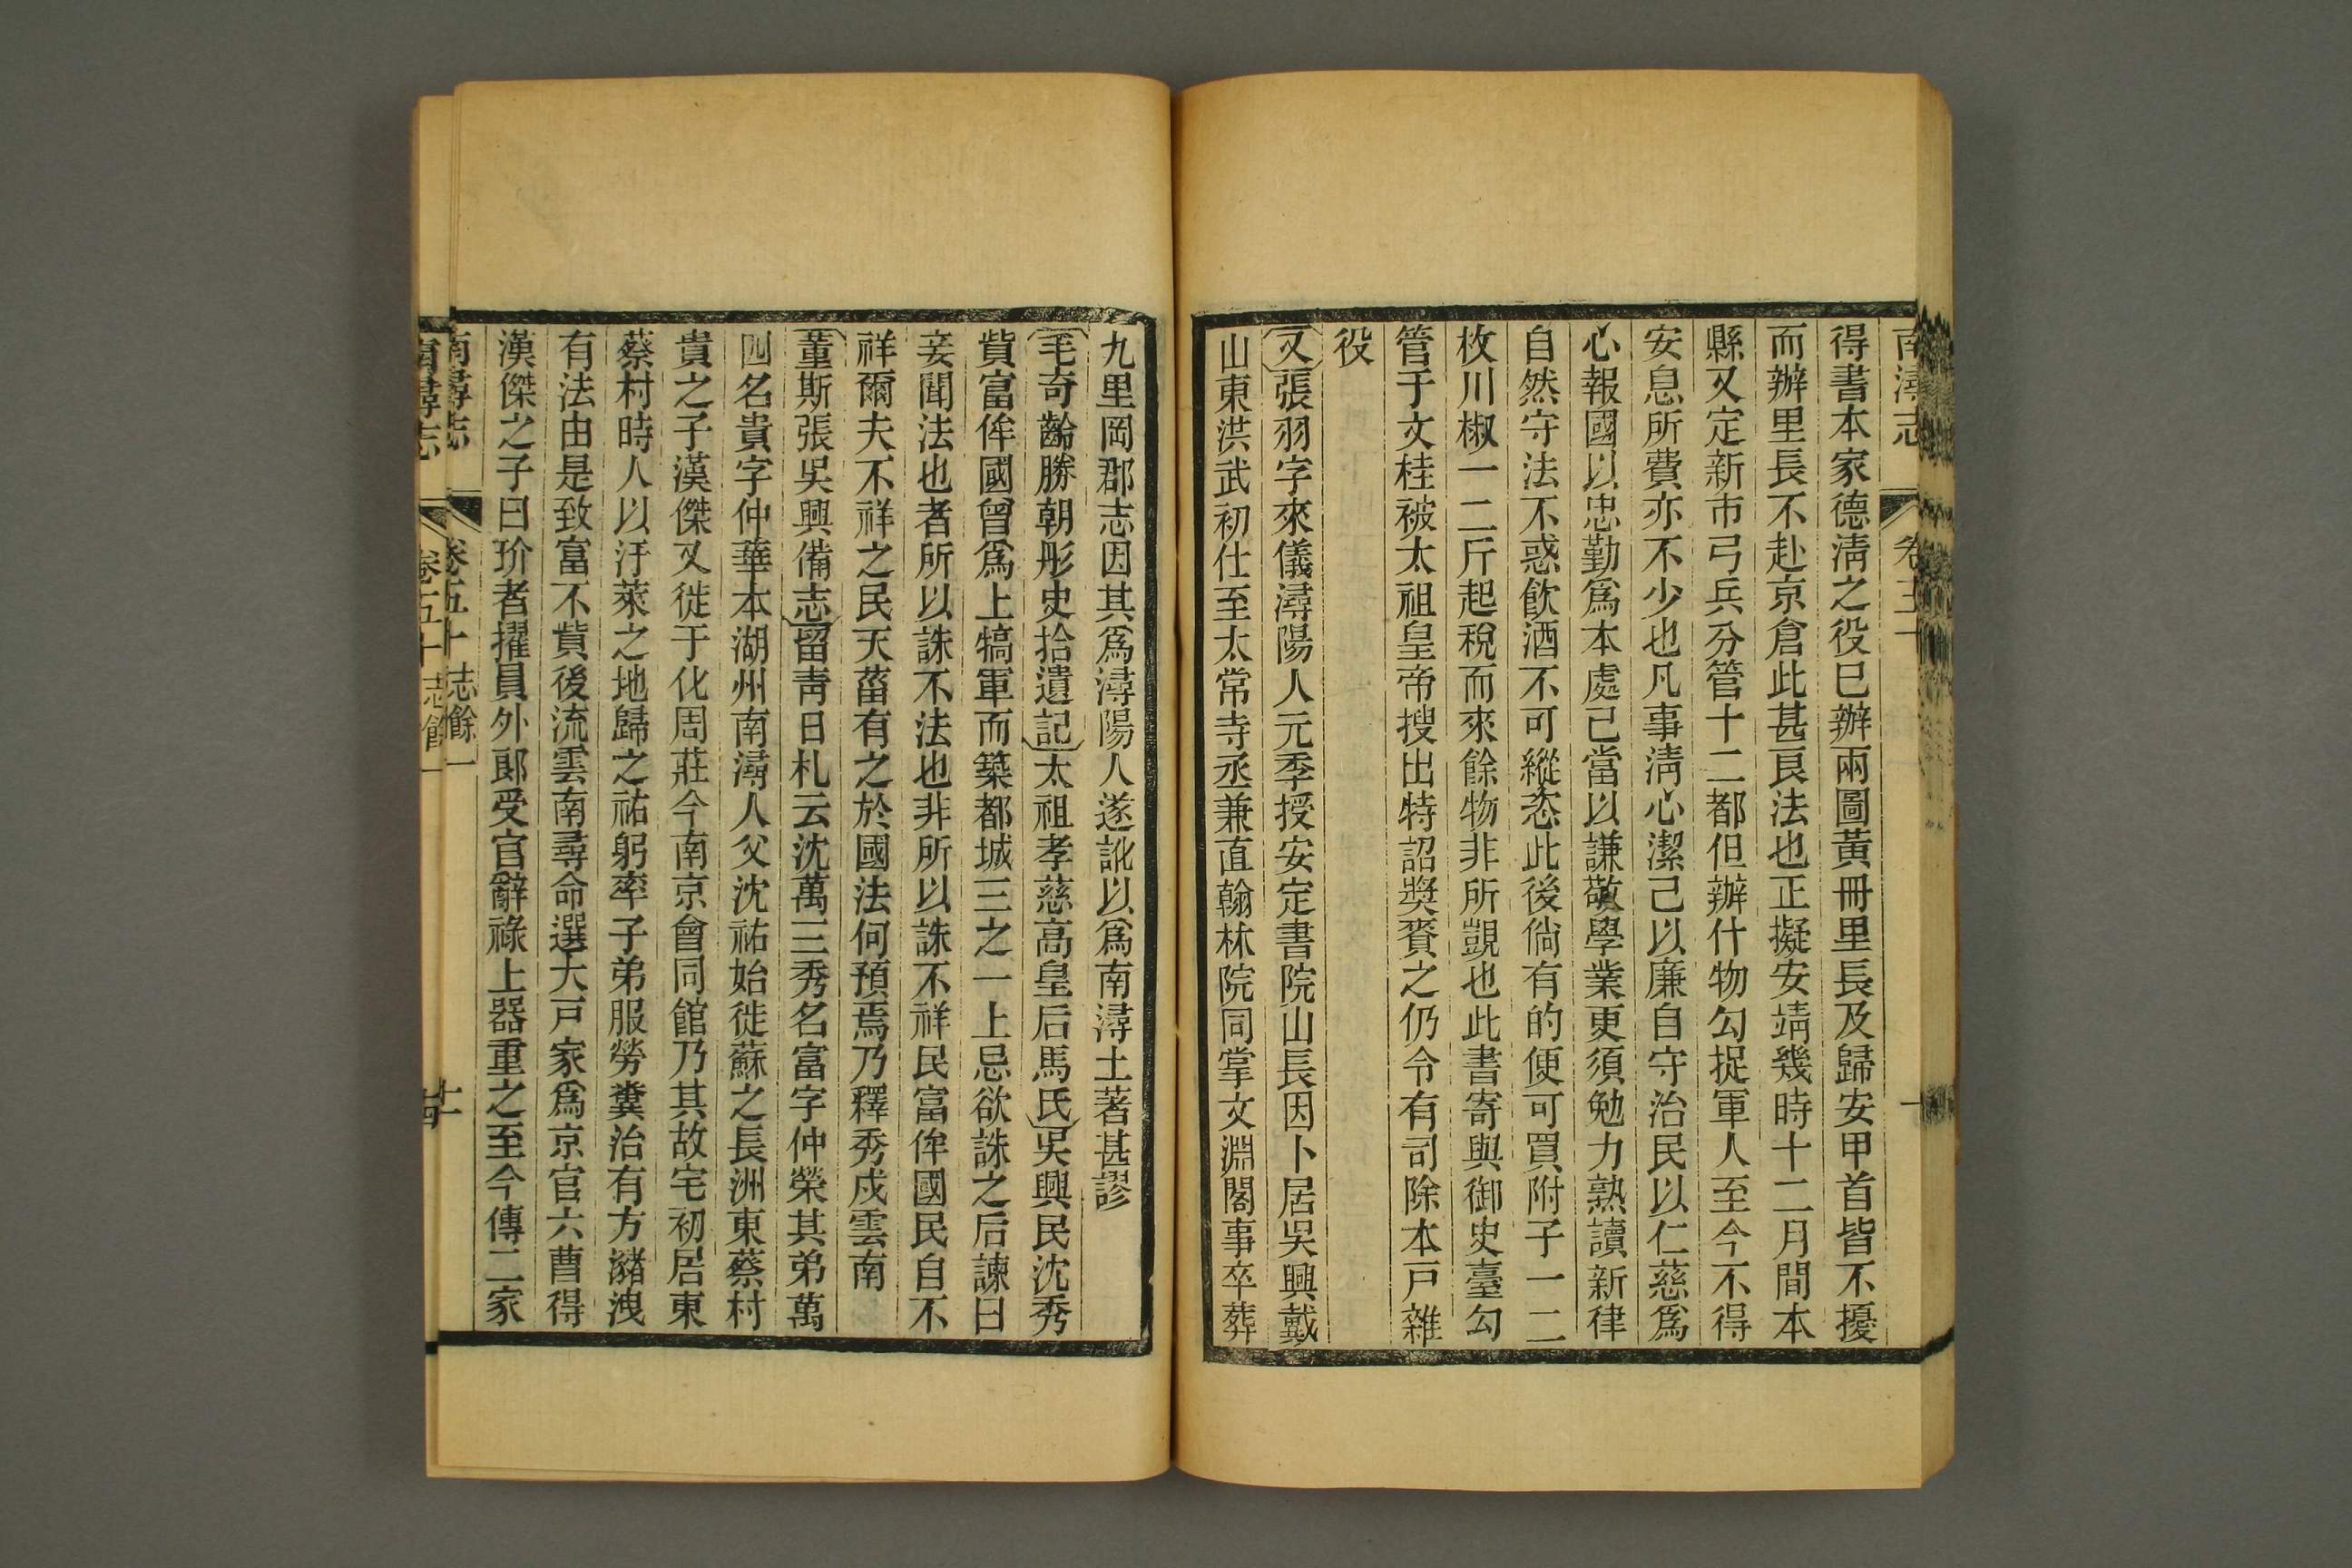 南潯志
卷五十
得書本家德淸之役巳辦兩圖黃冊里長及歸安甲首皆不擾
而辦里長不赴京倉此甚良法也正擬安靖幾時十二月間本
縣又定新市弓兵分管十二都但辦什物勾捉軍人至今不得
安息所費亦不少也凡事淸心潔己以廉自守治民以仁慈爲
心報國以忠勤爲本處己當以謙敬學業更須勉力熟讀新律
自然守法不惑飮酒不可縱恣此後倘有的便可買附子一二
枚川椒一二斤起稅而來餘物非所覬也此書寄與御史臺勾
管于文桂被太祖皇帝搜出特詔獎賚之仍令有司除本戸雜
役
又張羽字來儀潯陽人元季授安定書院山長因卜居吳興戴
山東洪武初仕至太常寺丞兼直翰林院同掌文淵閣事卒葬
九里岡郡志因其爲潯陽人遂訛以爲南潯土著甚謬
毛奇齡勝朝彤史拾遺記太祖孝慈高皇后馬氏吳興民沈秀
貲富侔國曾爲上犒軍而築都城三之一上忌欲誅之后諫曰
妾聞法也者所以誅不法也非所以誅不祥民富侔國民自不
祥爾夫不祥之民天菑有之於國法何預焉乃釋秀戍雲南
董斯張吳興備志留靑日札云沈萬三秀名富字仲榮其弟萬
四名貴字仲華本湖州南潯人父沈祐始徙蘇之長洲東蔡村
貴之子漢傑又徙于化周莊今南京會同館乃其故宅初居東
蔡村時人以汙萊之地歸之祐躬率子弟服勞糞治有方瀦洩
有法由是致富不貲後流雲南尋命選大戸家爲京官六曹得
漢傑之子曰玠者擢員外郞受官辭祿上器重之至今傳二家
南潯志
卷五十
志餘一
十二
南潯志
卷五十
志餘一